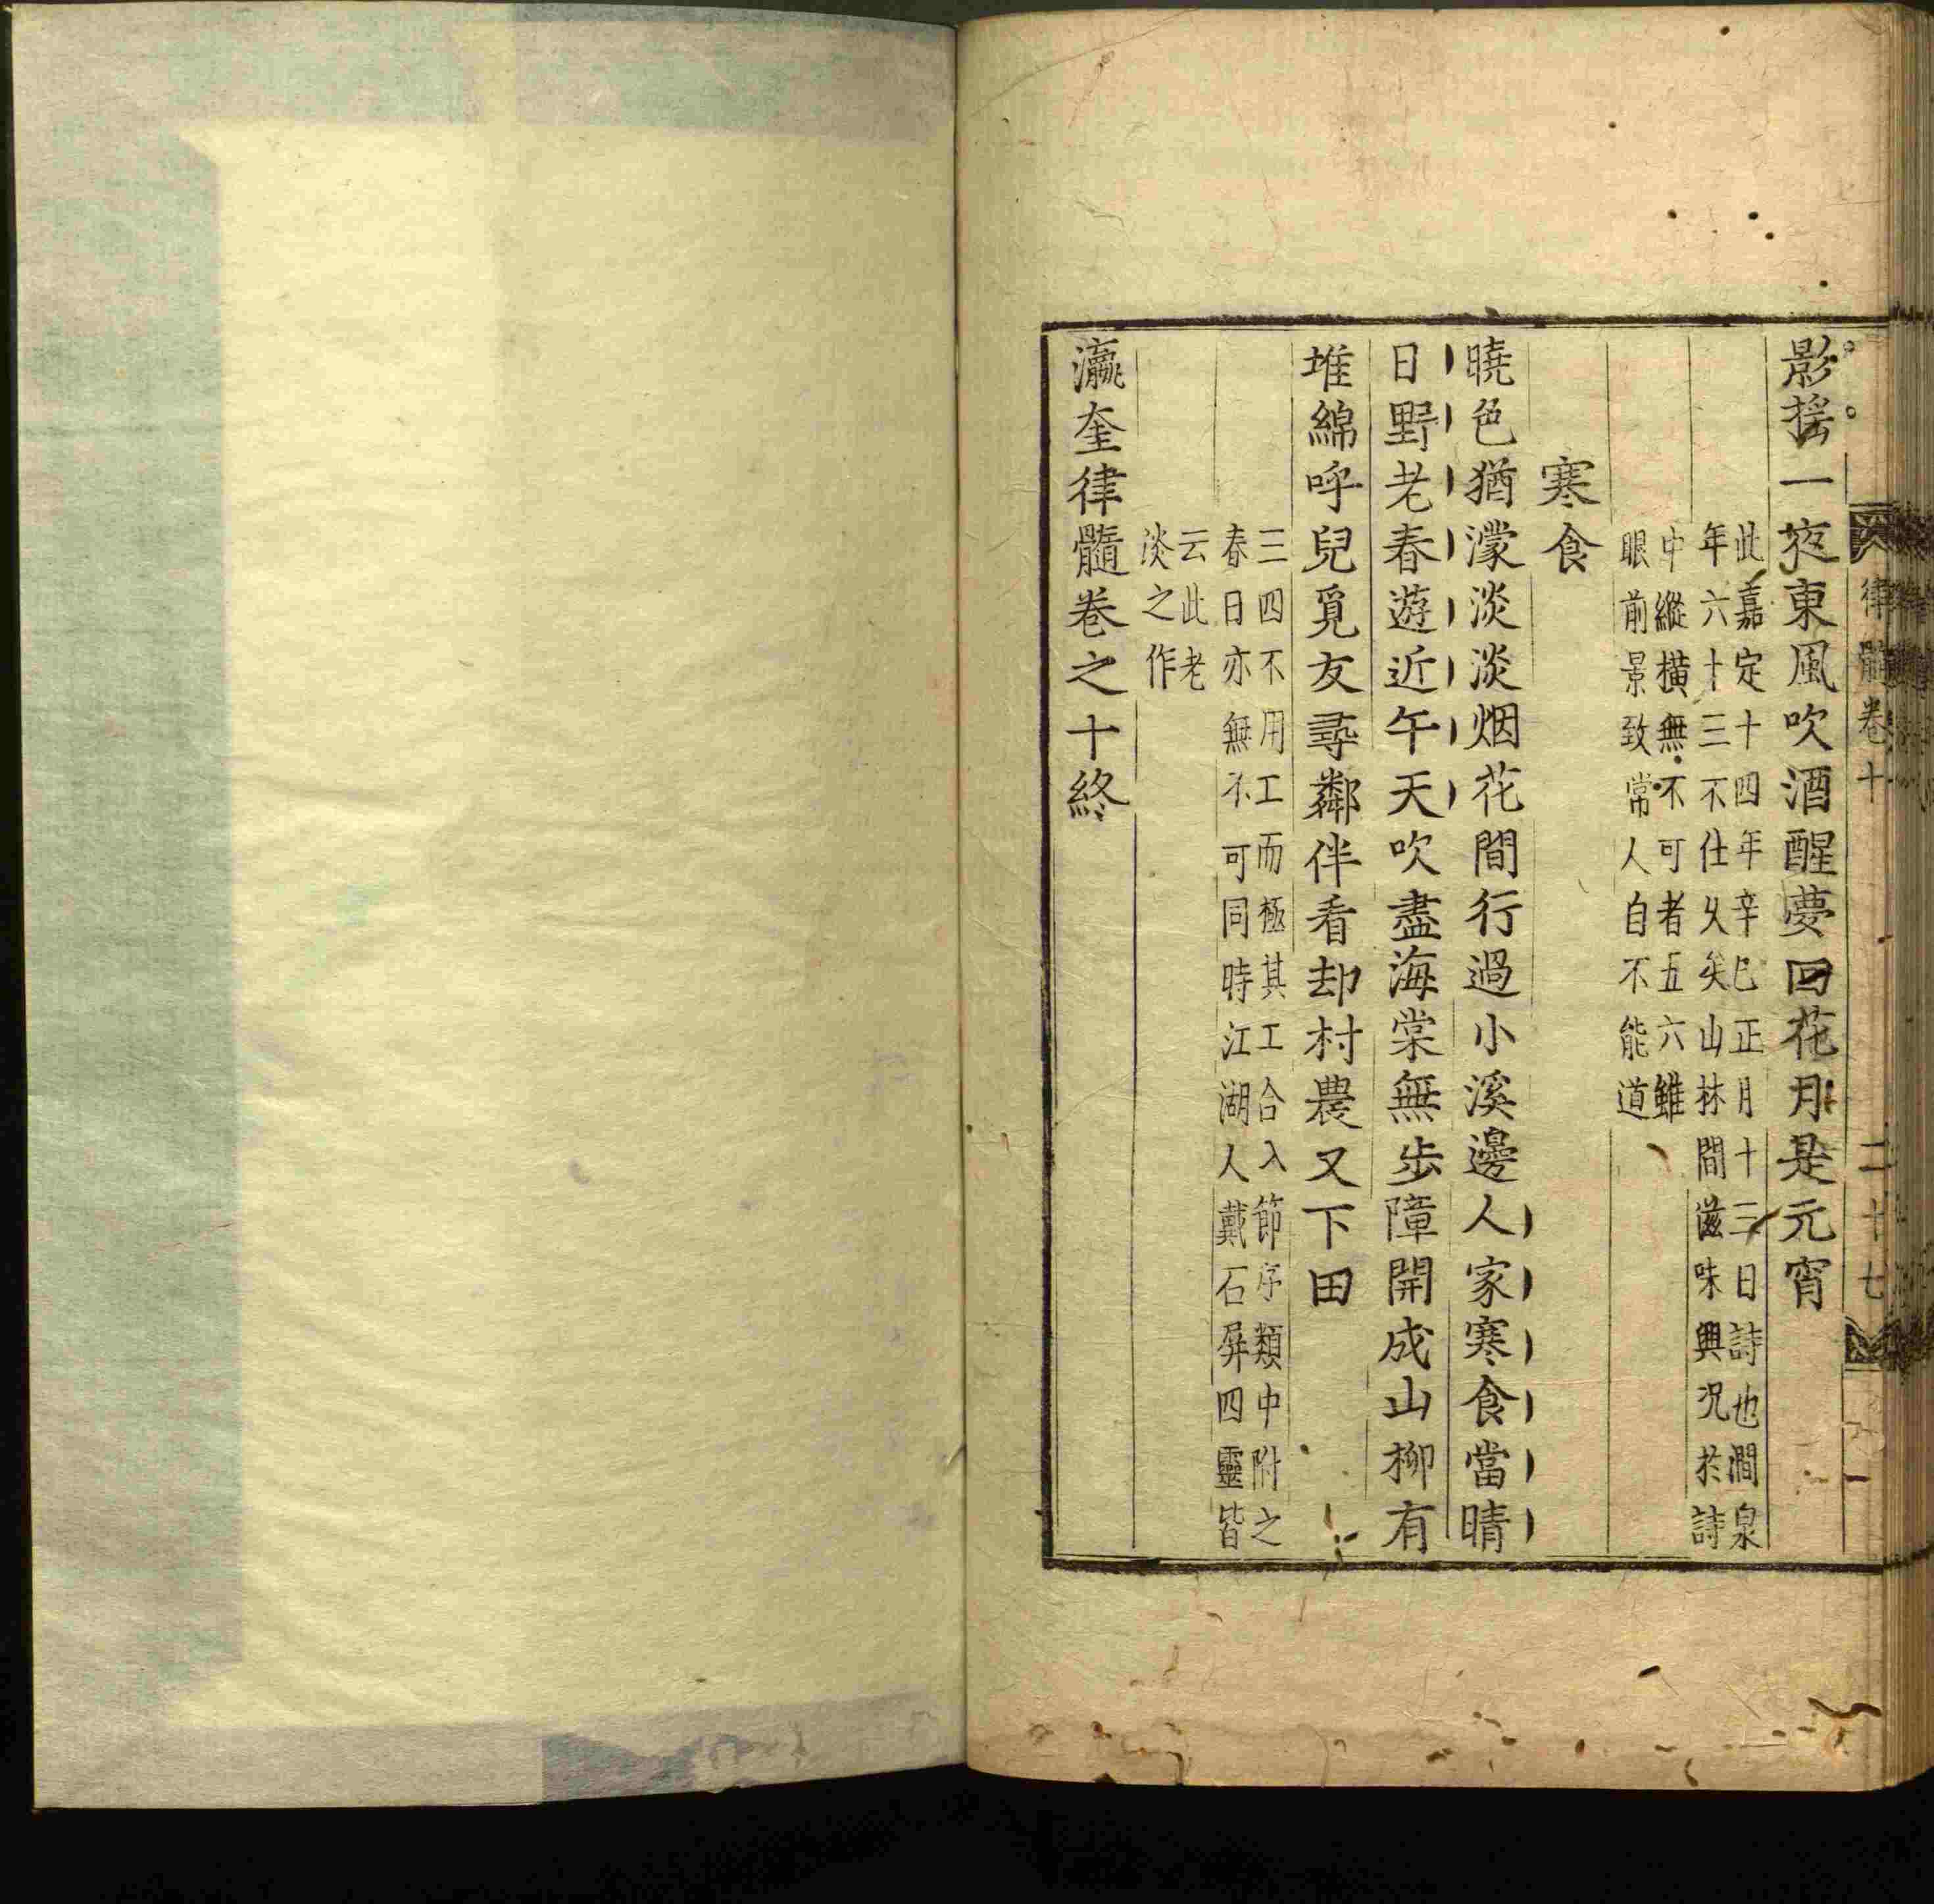 律髓卷十 二十七
影揺一夜東風吹酒醒夢回花月是元宵
此嘉定十四年辛巳正月十三日詩也澗泉
年六十三不仕久矣山林間滋味興况於詩
中縱横無不可者五六雖
眼前景致常人自不能道
寒食
曉色猶濛淡淡烟花間行過小溪邊人家寒食當晴
日野老春遊近午天吹盡海棠無步障開成山柳有
堆綿呼兒覓友尋鄰伴看却村農又下田
三四不用工而極其工合入節序類中附之
春日亦無不可同時江湖人戴石屏四靈皆
云此老
淡之作
瀛奎律髓卷之十終